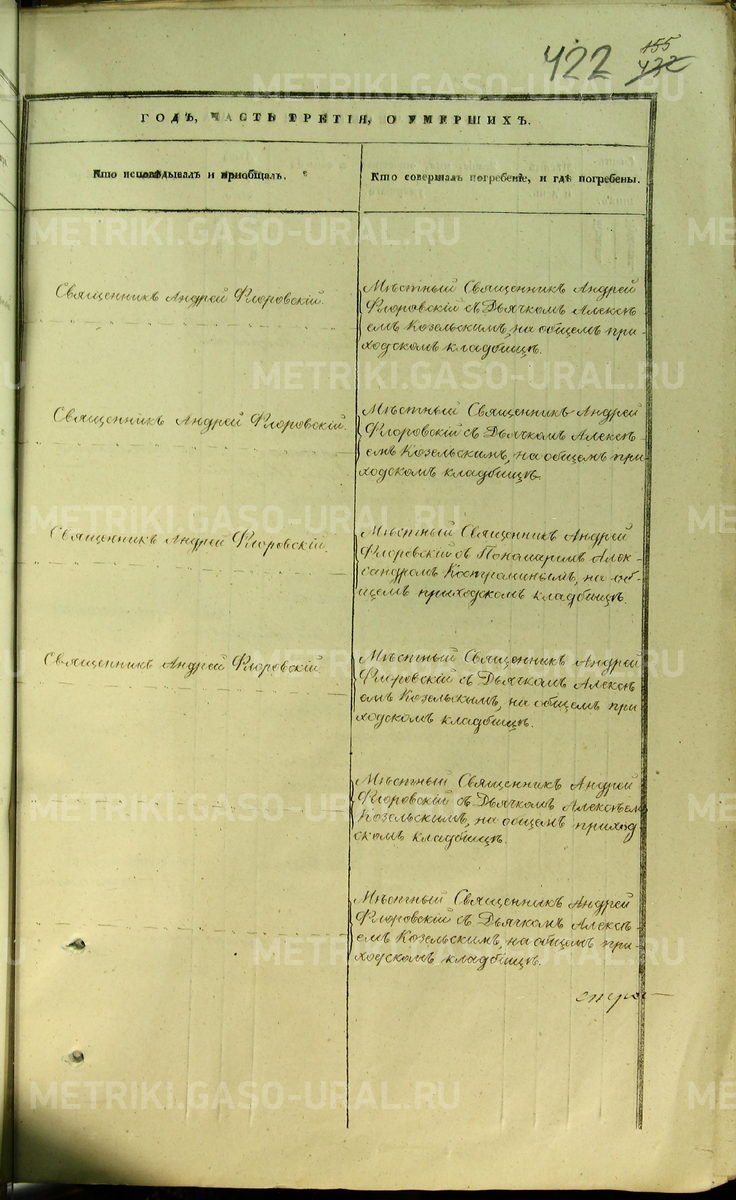 422
155
432
ГОДЪ, ЧАСТЬ ТРЕТІЯ, О УМЕРШИХЪ.
Кто исповѣдывалъ и пріобщалъ.
Кто совершалъ погребеніе, и гдѣ погребены.
Священникъ Андрей Флоровскій.
Мѣстный Священникъ Андрей
Флоровскій съ Дьячкомъ Алексѣ-
емъ Козельскимъ, на общемъ при-
ходскомъ кладбищѣ.
Священникъ Андрей Флоровскій.
Мѣстный Священникъ Андрей
Флоровскій съ Дьячкомъ Алексѣ-
емъ Козельскимъ, на общемъ при-
ходскомъ кладбищѣ.
Священникъ Андрей Флоровскій.
Мѣстный Священникъ Андрей
Флоровскій съ Пономаремъ Алек-
сандромъ Костроминымъ, на об-
щемъ приходскомъ кладбищѣ.
Священникъ Андрей Флоровскій
Мѣстный Священникъ Андрей
Флоровскій съ Дьячкомъ Алексѣ
емъ Козельскимъ, на общемъ при
ходскомъ кладбищѣ.
Мѣстный Священникъ Андрей
Флоровскій съ Дьячкомъ Алексѣем
Козельскимъ, на общемъ приход
скомъ кладбищѣ.
Мѣстный Священникъ Андрей
Флоровскій съ Дьячкомъ Алексѣ-
емъ Козельскимъ, на общемъ при-
ходскомъ кладбищѣ.
METRIKI.GASO-URAL.RU